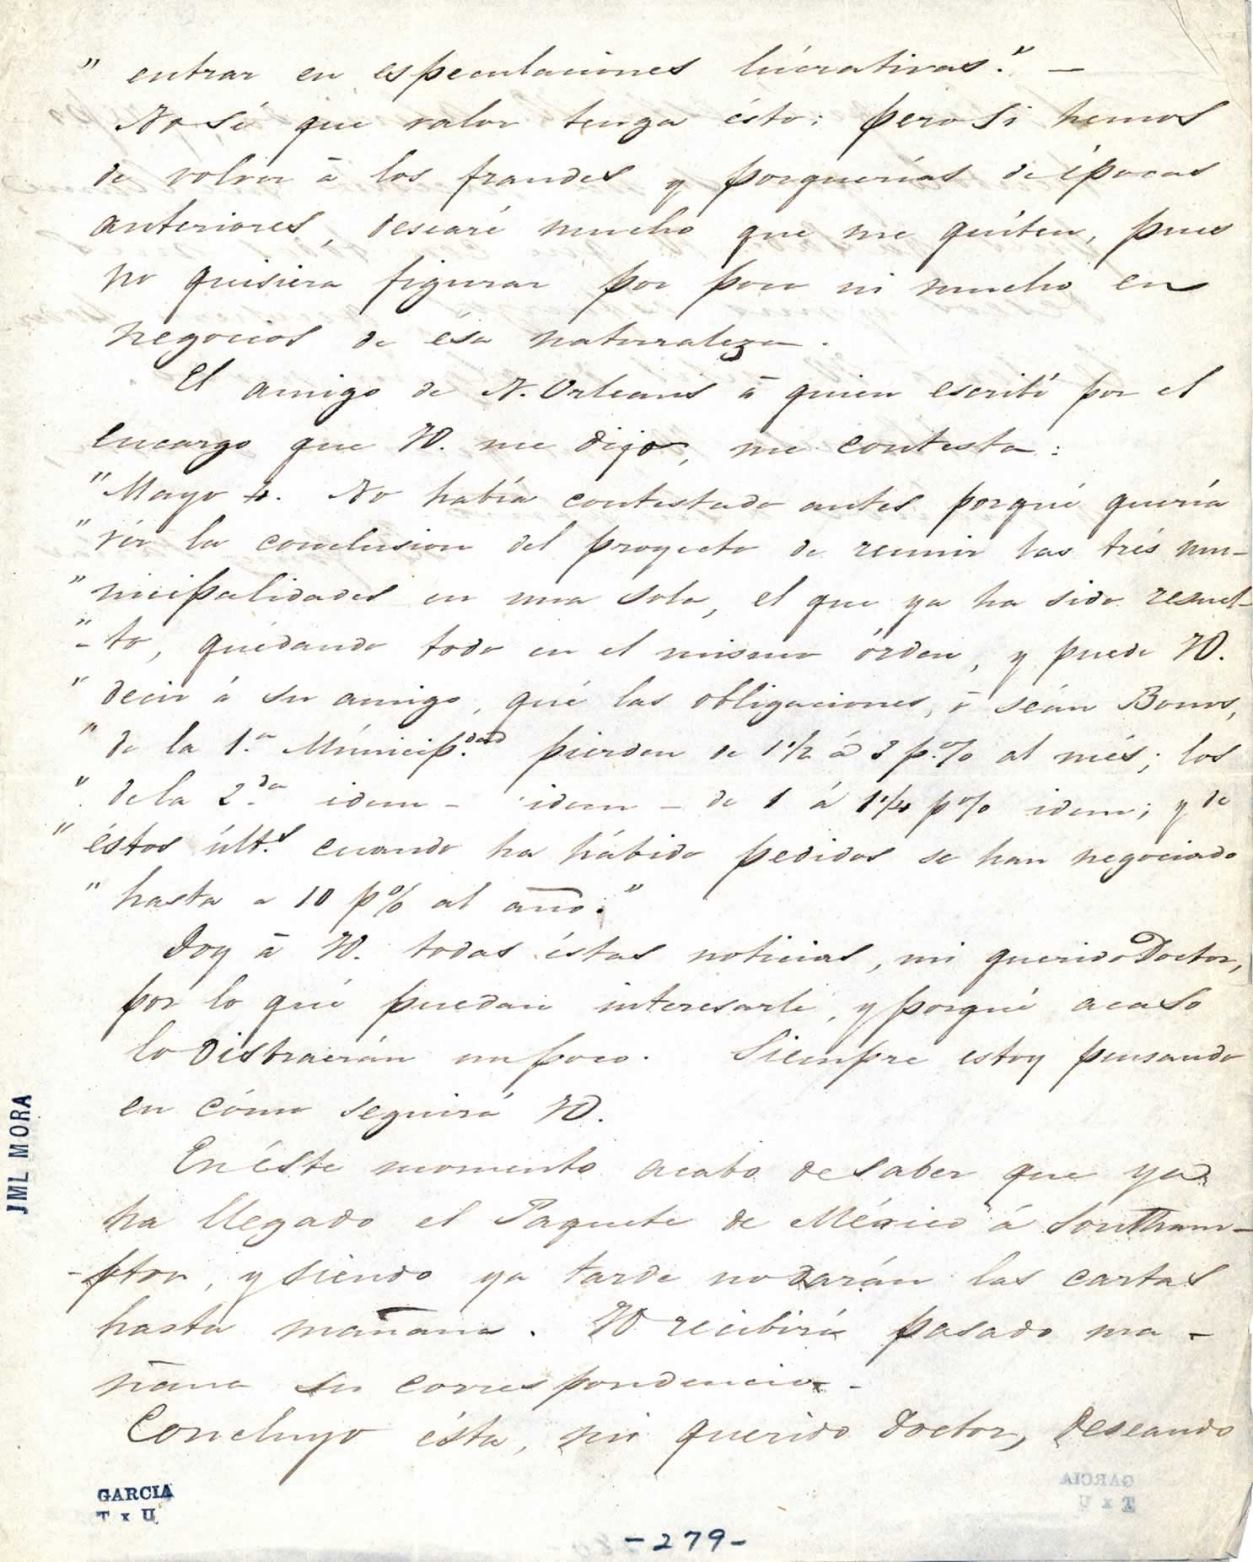 " entrar en especulaciones lúcrativas." —
No sé que valor tenga ésto: pero si hemos
de volver à los fraudes y porquerías de épocas
anteriores, desearé mucho que me quiten, pues
no quisiera figurar por poco ni mucho en
negocios de ésa naturaleza.
El amigo de N. Orleans à quien escribí por el
encargo que VD. me dijo, me contesta:
"Mayo 4. No había contestado antes porqué quería
"vér la conclusion del proyecto de reunir las trés mu-
"nicipalidades en una sola, el que ya ha sido resuel-
"-to, quedando todo en el mismo órden, y puede VD.
"decir á su amigo, qué las obligaciones, ó séan Bonos,
"de la 1.ª Múnicip.dad pierden de 1½ á 2 p.% al més; los
". de la 2.da idem - idem - de 1 á 1¼ p% idem; y de
"éstos últ.s cuando ha hábido pedidos se han negociado
"hasta a 10 p% al año."
Doy à VD. todas éstas noticias, mi querido Doctor,
por lo qué puedan interesarle, y porqué acaso
lo distraerán un poco. Siempre estoy pensando
en cómo seguirá VD.
En éste momento acabo de saber que ya
ha llegado el Paquete de México á Southam-
-pton, y siendo ya tarde no darán las cartas
hasta mañana. VD recibirá pasado ma-
ñana su correspondencia.-
Concluyo ésta, mi querido Doctor, deseando
JML MORA
GARCIA
T x U
GARCIA
T x U
-279-